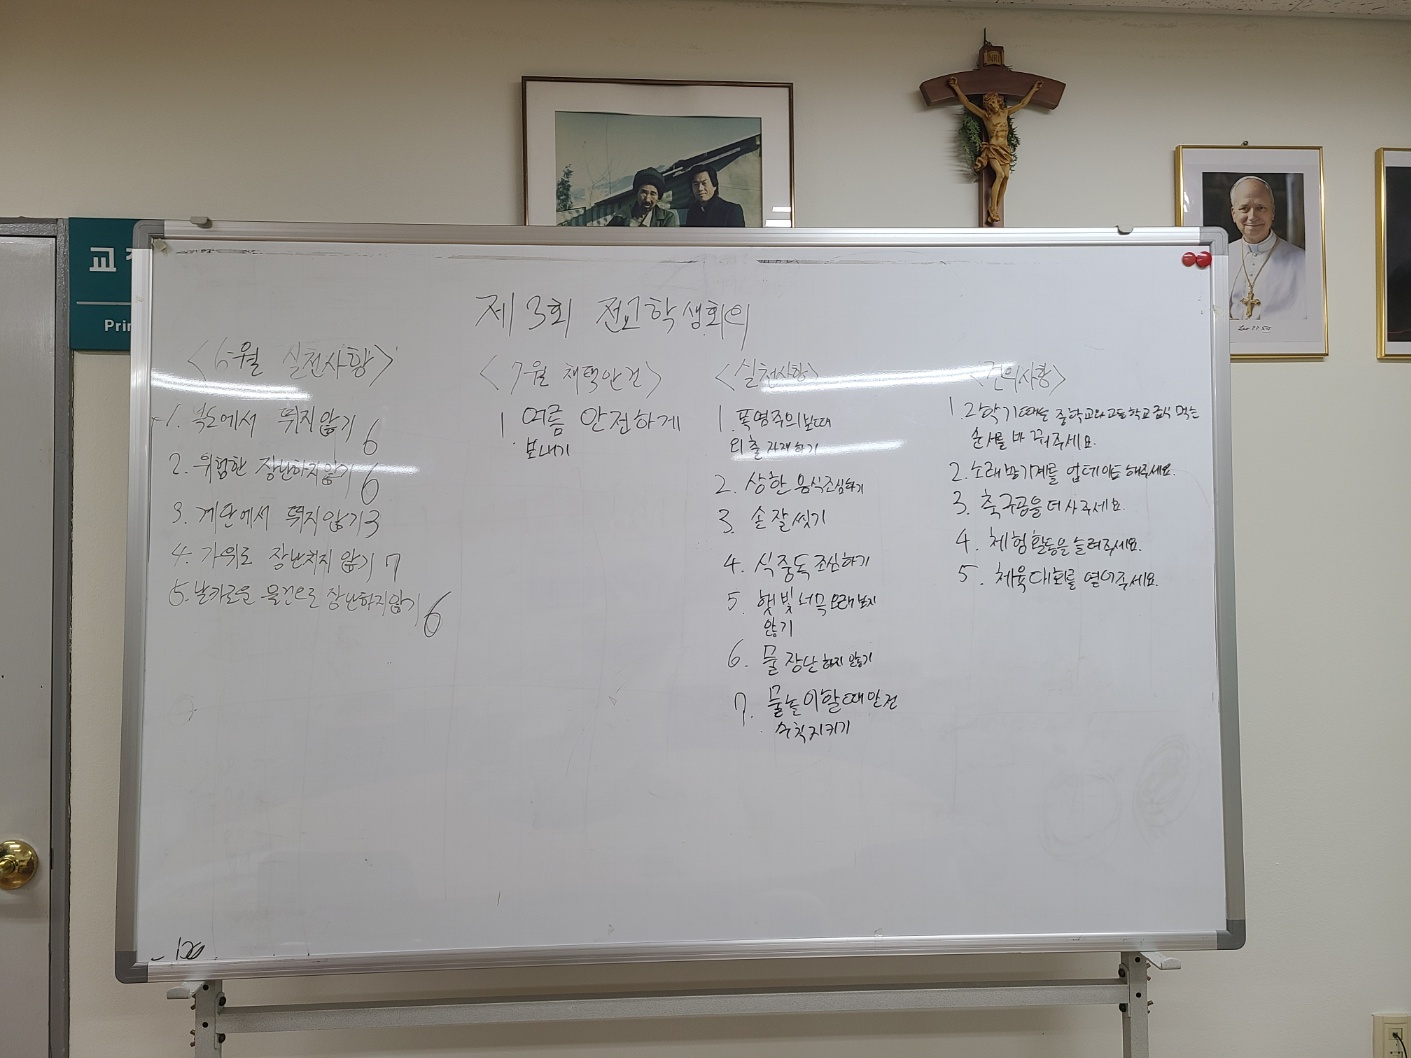 제 3회 전교학생회의
<6월 실천사항>
1. 복도에서 뛰지않기 6
2. 위험한 장난하지않기 6
3. 계단에서 뛰지않기 3
4. 가위로 장난치지 않기 7
5. 날카로운 물건으로 장난하지않기 6
<7월 채택안건>
1. 여름 안전하게
보내기
<실천사항>
1. 폭염주의보때
외출 자제하기
2. 상한 음식조심하기
3. 손 잘 씻기
4. 식중독 조심하기
5. 햇빛 너무 오래 보지
않기
6. 물 장난하지 않기
7. 물놀이할때 안전
수칙지키기
<건의사항>
1 2학기때는 중학교와 고등학교 급식 먹는
순서를 바꿔주세요.
2. 노래방기계를 업데이트 해주세요.
3. 축구공을 더 사주세요.
4. 체험활동을 늘려주세요.
5. 체육대회를 열어주세요.
교
Prin
INRI